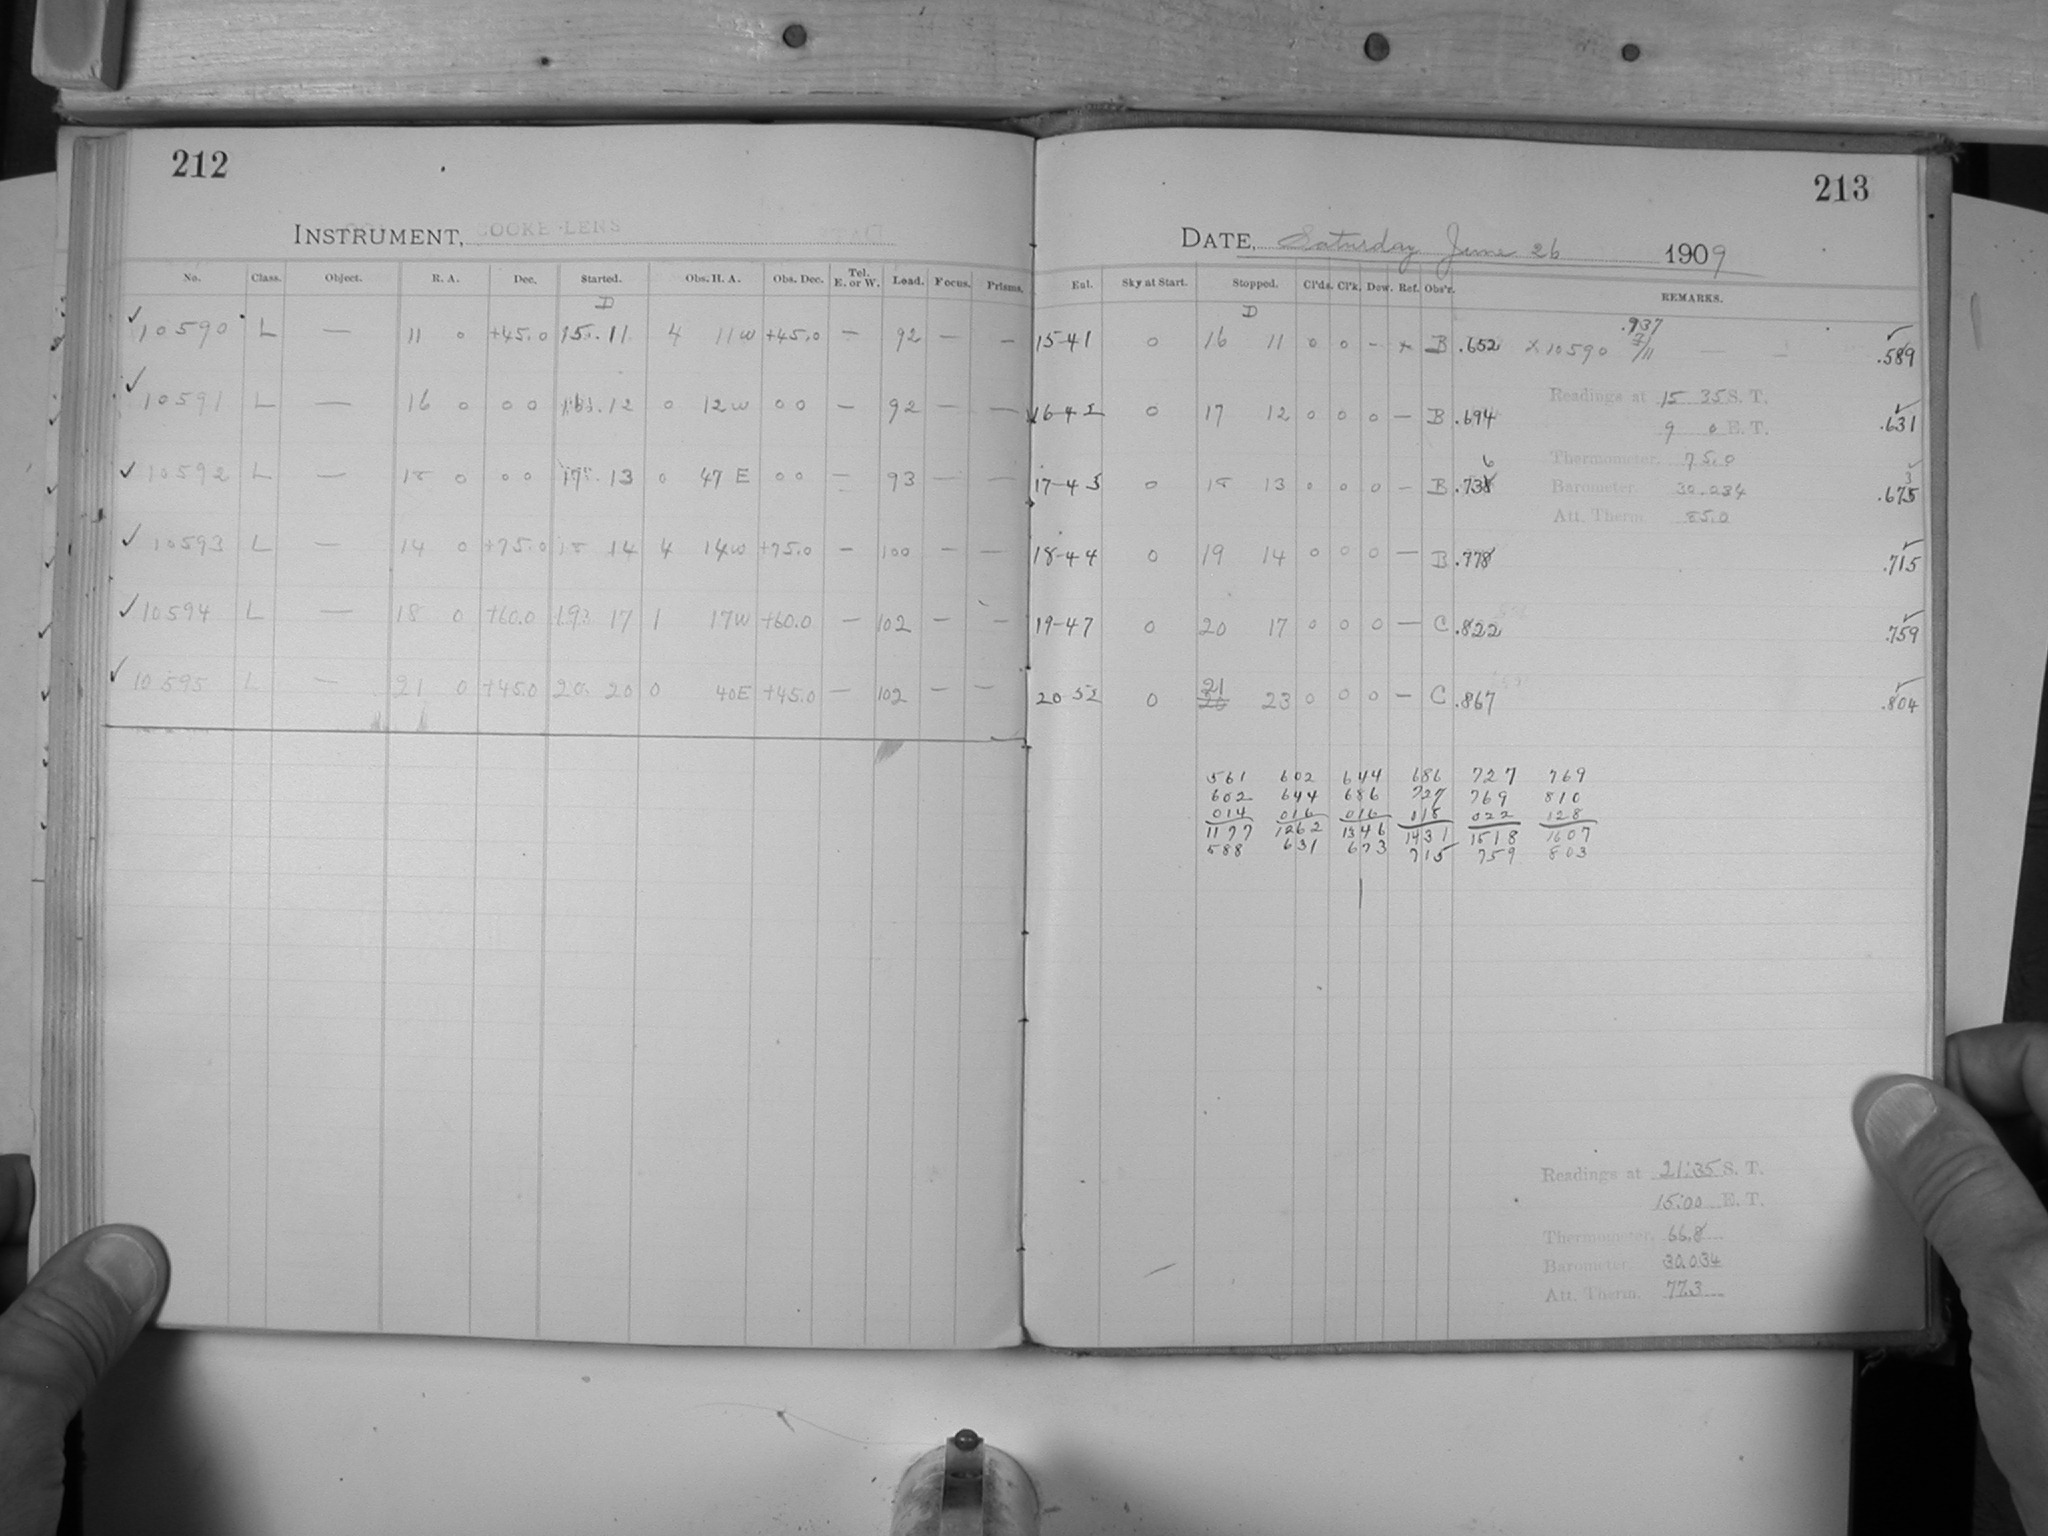 212
INSTRUMENT, COOKE LENS
No. Class. Object. R. A. Dec. Started. Obs. H. A. Obs. Dec. Tel. E. or W. Load. Focus. Prisms.
D
✓ 10590 L — 11 0 +45.0 15 11 4 11 W +45.0 — 92 — —
✓ 10591 L — 16 0 0 0 16 12 0 12 W 0 0 — 92 — —
✓ 10592 L — 18 0 0 0 17 13 0 47 E 0 0 — 93 — —
✓ 10593 L — 14 0 +75.0 18 14 4 14 W +75.0 — 100 — —
✓ 10594 L — 18 0 +60.0 19 17 1 17 W +60.0 — 102 — —
✓ 10595 L — 21 0 +45.0 20 20 0 40 E +45.0 — 102 — —
213
DATE, Saturday June 26 1909
Ent. Sky at Start. Stopped. Cl'ds. Cl'k. Dew. Ref. Obs'r. REMARKS.
D
15-41 0 16 11 0 0 - x B .652 x 10590 .937 7/11 — .589
16-42 0 17 12 0 0 0 — B .694 .631
Readings at 15 35 S. T.
9 0 E. T.
Thermometer, 75.0
17-43 0 18 13 0 0 0 — B .738 6 .675 3
Barometer. 30.034
Att. Therm. 85.0
18-44 0 19 14 0 0 0 — B .778 .715
19-47 0 20 17 0 0 0 — C .822 .759
20 52 0 21 23 0 0 0 — C .867 .804
561 602 644 686 727 769
602 644 686 727 769 810
014 016 016 018 022 128
1177 1262 1346 1431 1518 1607
588 631 673 715 759 803
Readings at 21:35 S. T.
15:00 E. T.
Thermometer, 66.8
Barometer. 30.034
Att. Therm. 77.3